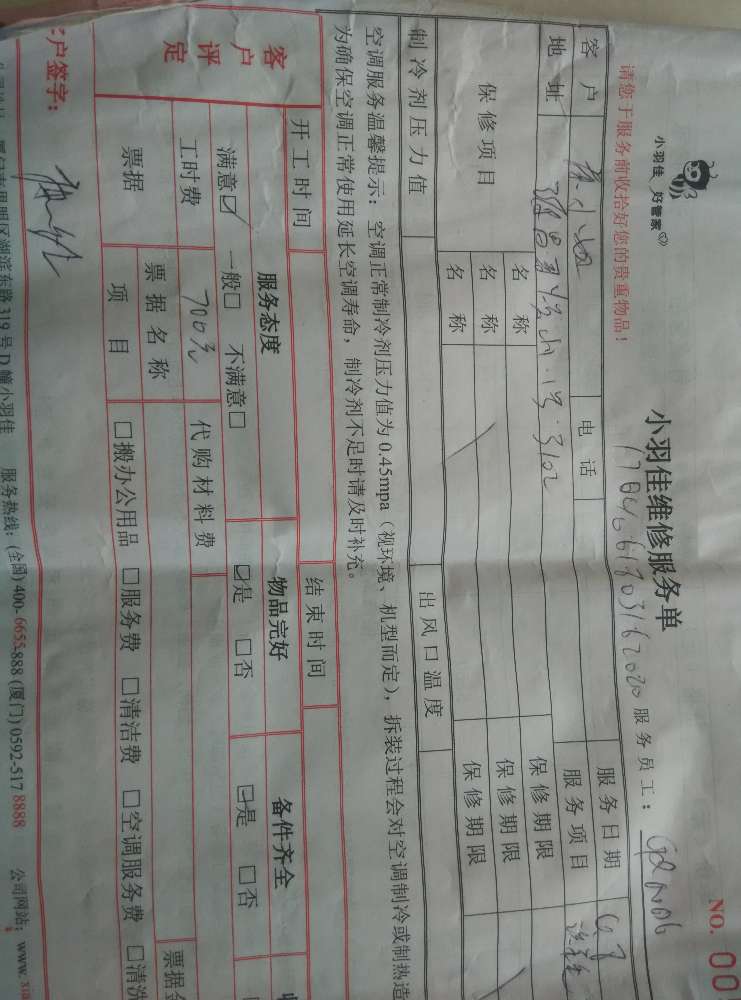 小羽佳 好管家
NO. 00
小羽佳维修服务单
请您于服务前收拾好您的贵重物品!
服务员工:
客户 电话 服务日期
地址 1号.3102 服务项目
保修项目 名称 保修期限
名称 保修期限
名称 保修期限
制冷剂压力值 出风口温度
空调服务温馨提示: 空调正常制冷剂压力值为0.45mpa (视环境、机型而定), 拆装过程会对空调制冷或制热造
为确保空调正常使用延长空调寿命, 制冷剂不足时请及时补充。
开工时间 结束时间
客户评定 服务态度 物品完好 备件齐全
满意☑ 一般□ 不满意□ ☑是 □否 ☑是 □否
工时费 700元 代购材料费
票据 票据名称 票据金
项目 □搬办公用品 □服务费 □清洁费 □空调服务费 □清洗
户签字:
湖滨东路319号D幢小羽佳 服务热线: (全国)400-6655-888 (厦门)0592-517 8888 公司网站: www.xia